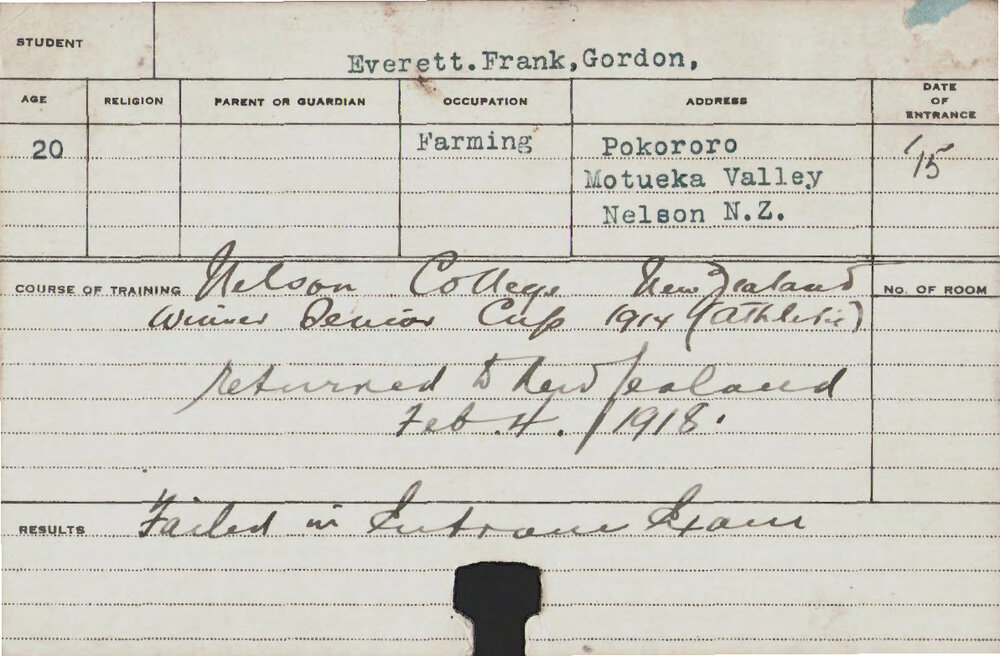 STUDENT
Everett.Frank,Gordon,
AGE RELIGION PARENT OR GUARDIAN OCCUPATION ADDRESS DATE OF ENTRANCE
20 Farming Pokororo '15
Motueka Valley
Nelson N.Z.
COURSE OF TRAINING Nelson College New Zealand No. OF ROOM
Winner Senior Cup 1914 (athletic)
returned to New Zealand
Feb. 4. 1918.
RESULTS Failed in Entrance Exam